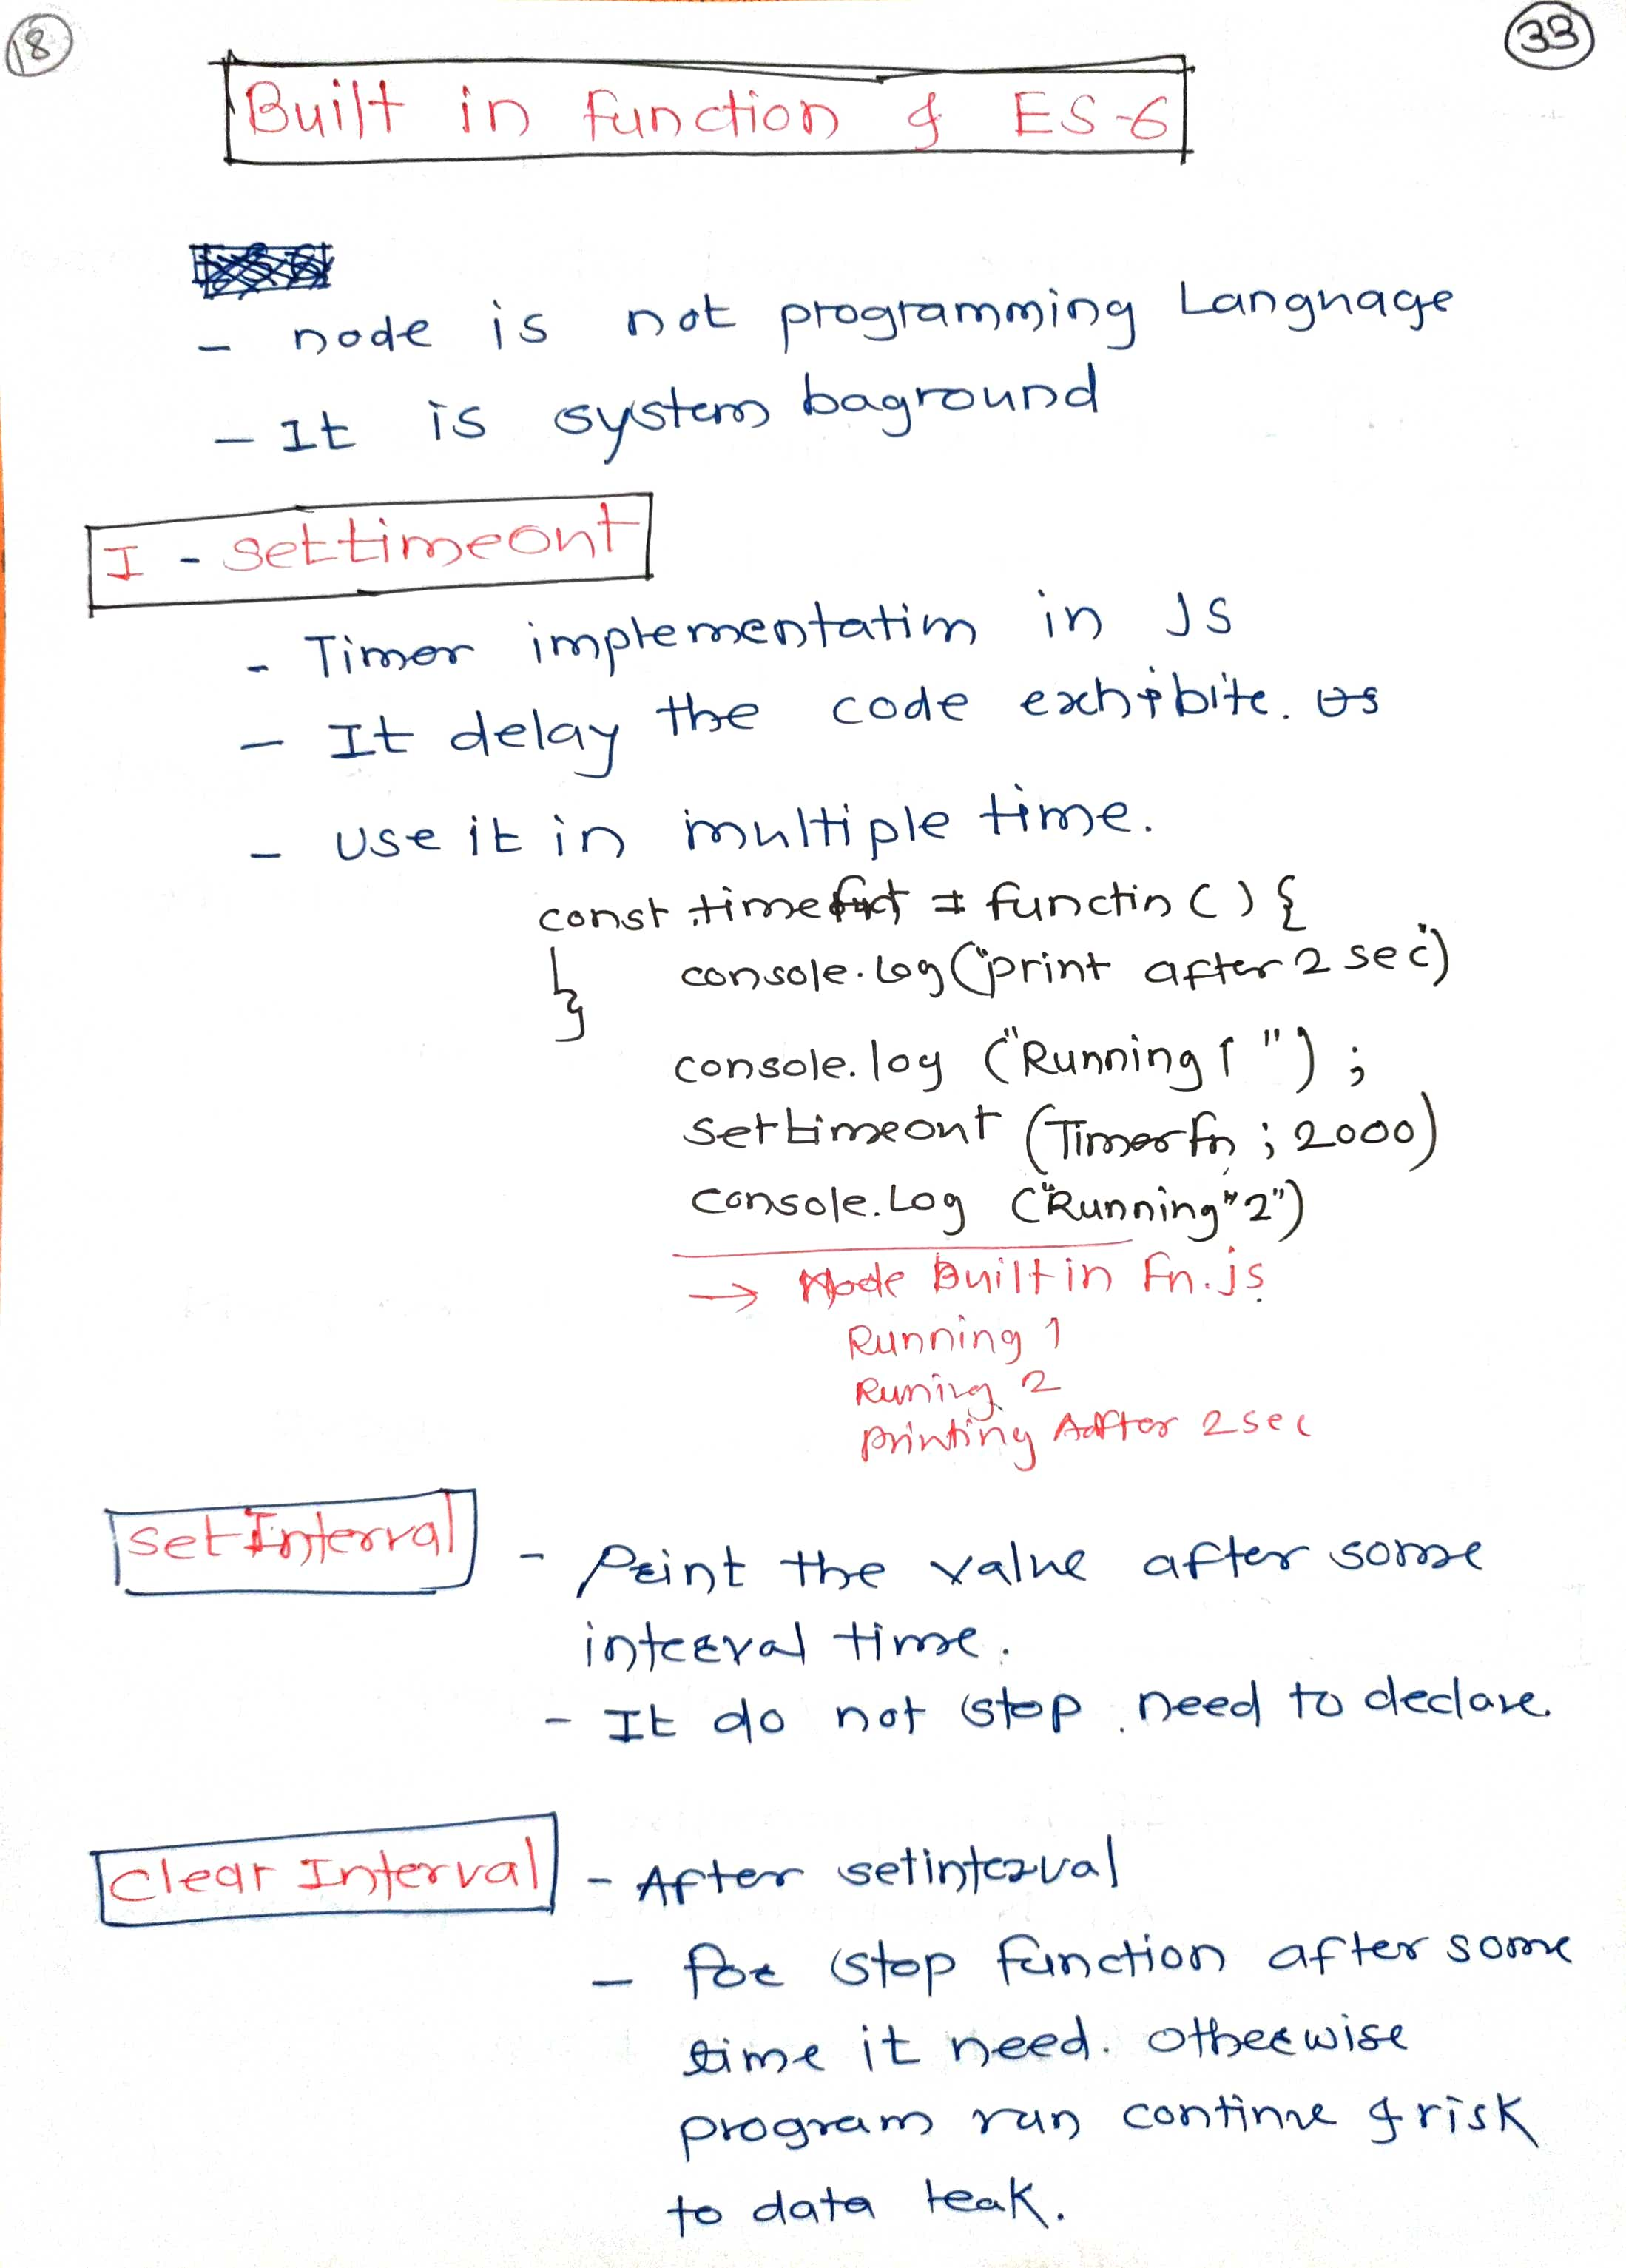 18
33
Built in function & ES-6
- node is not programming Language
- It is system baground
I - settimeout
- Timer implementation in JS
- It delay the code exhibite.
- Use it in multiple time.
const time = function () {
console.log("print after 2 sec")
}
console.log ("Running 1 ") ;
settimeout (Timerfn ; 2000)
Console.Log ("Running" 2")
→ Node Builtin Fn.js
Running 1
Runing 2
printing After 2 sec
setInterval - Print the value after some
interval time.
- It do not stop. need to declare.
Clear Interval - After setinterval
- for stop function after some
time it need. Otherwise
program run continue & risk
to data leak.